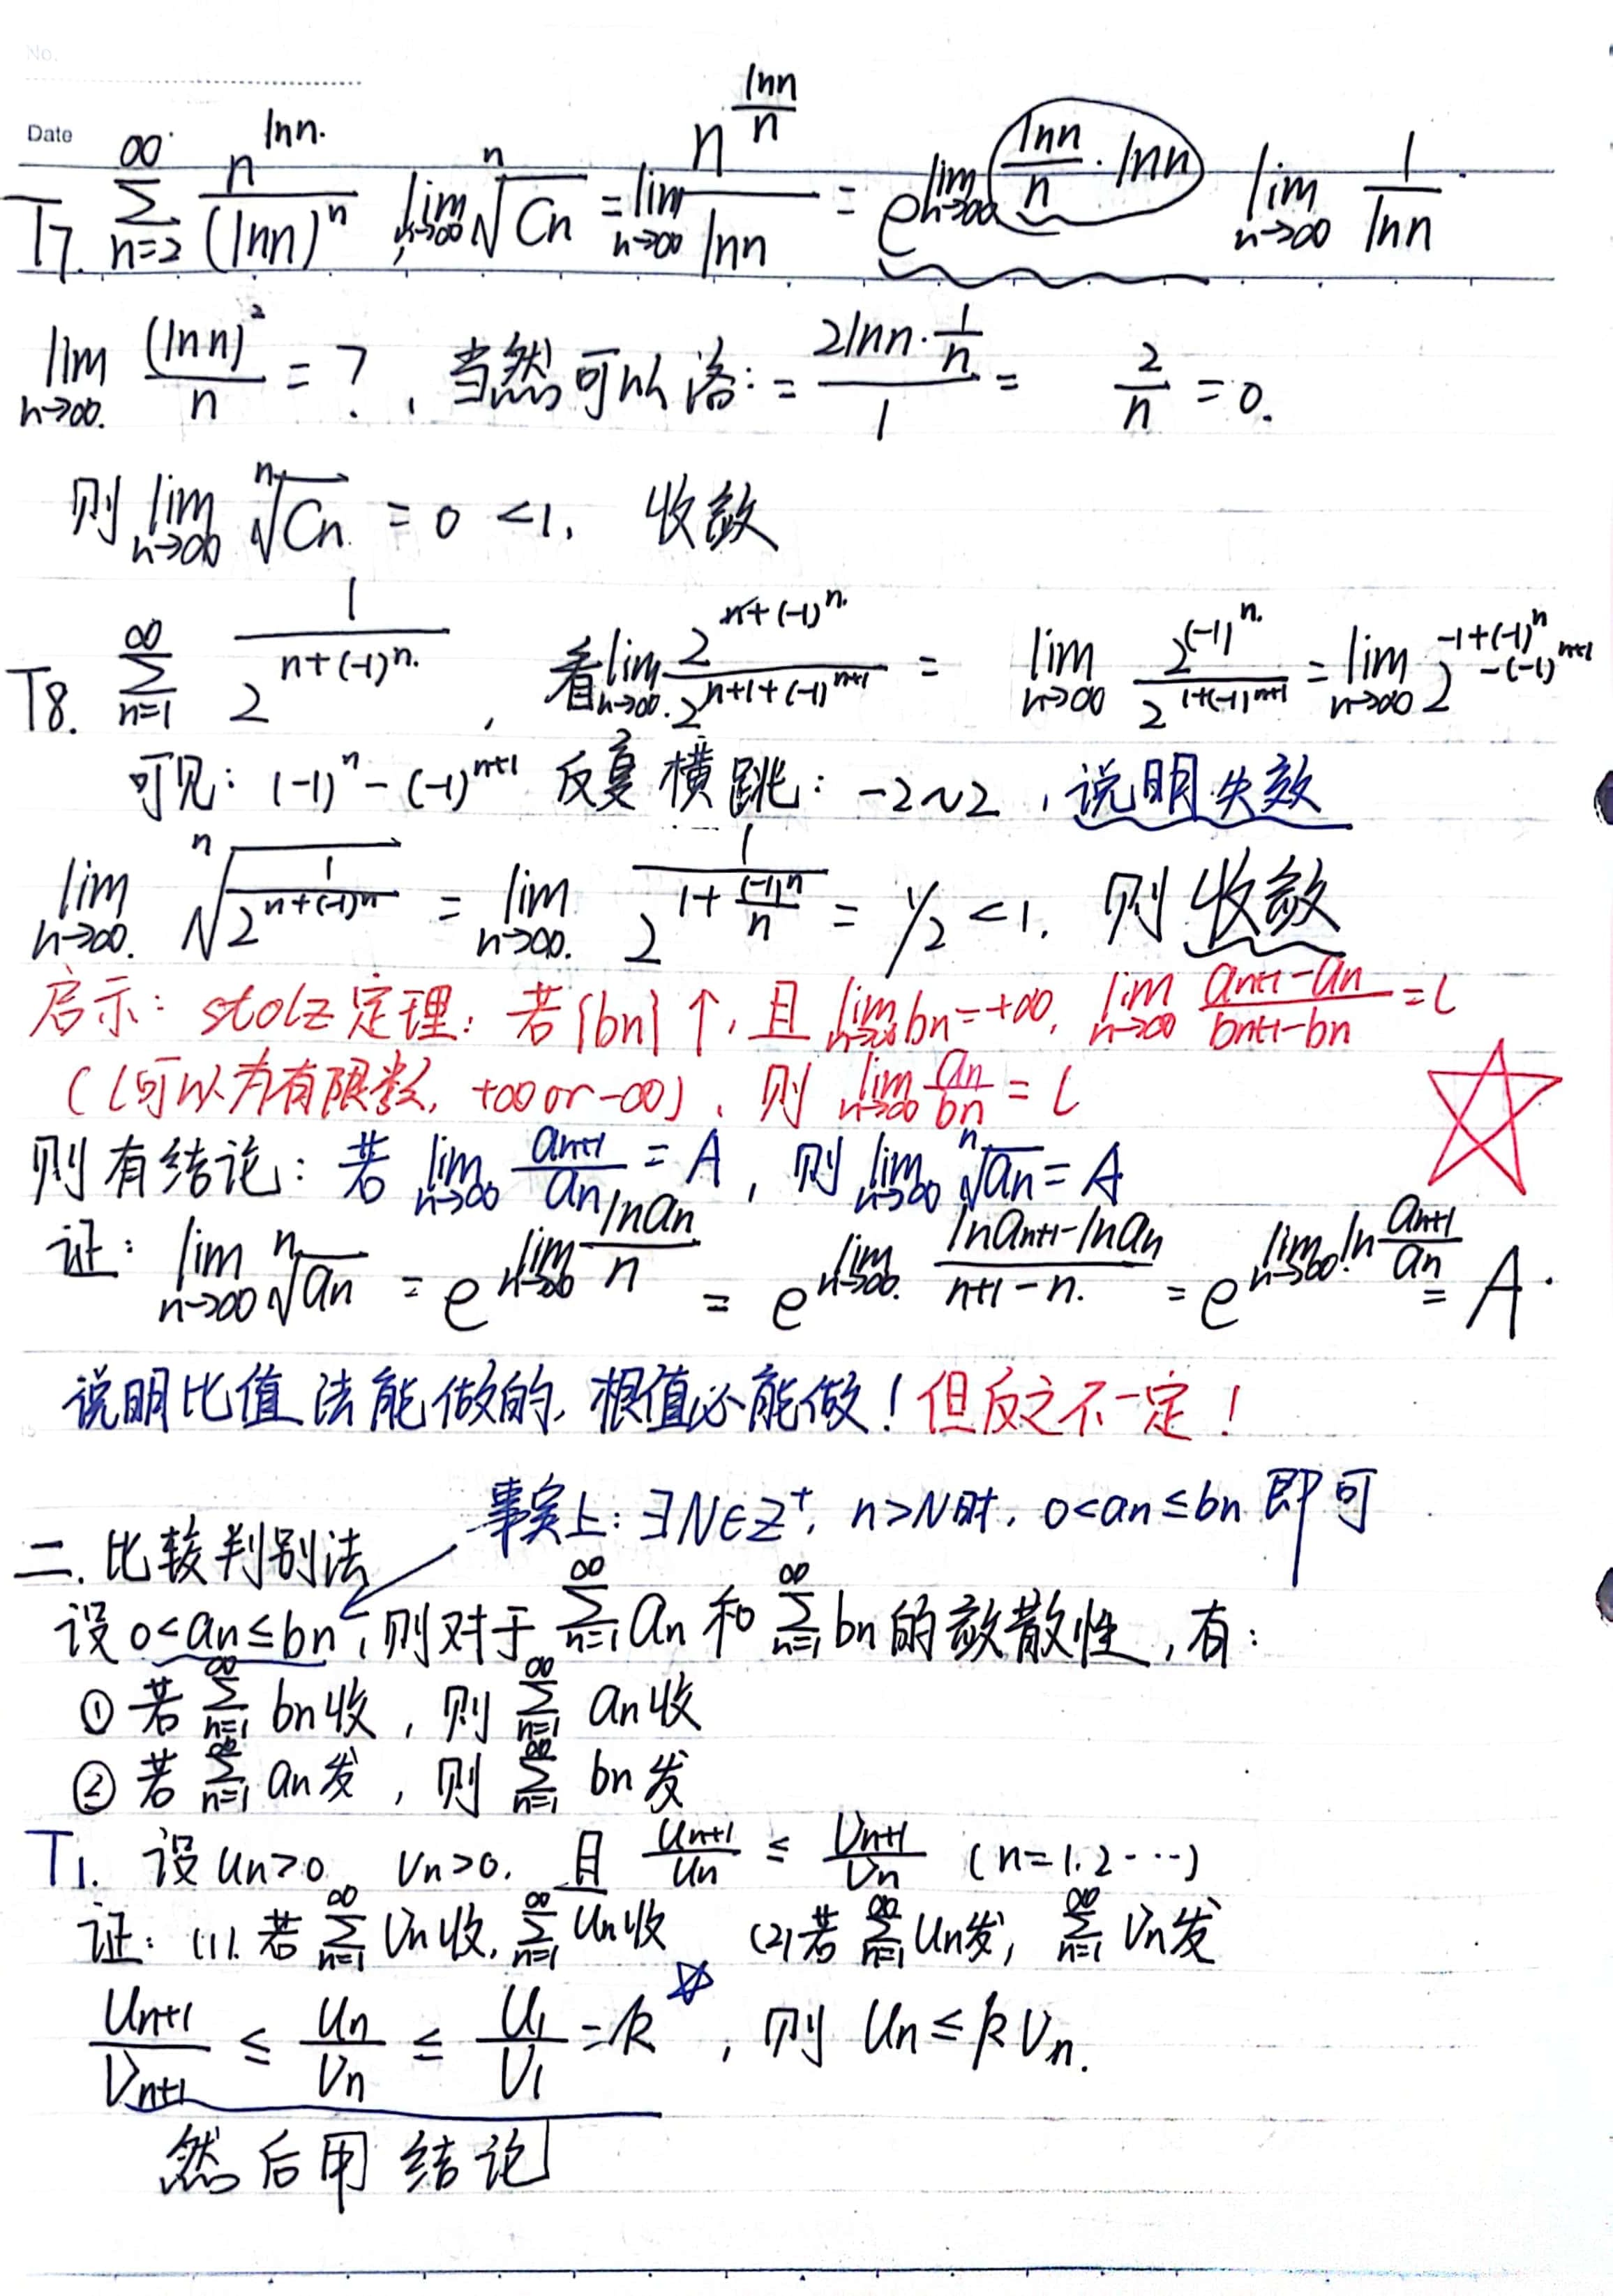 No.
Date
T7. $\sum_{n=2}^{\infty} \frac{n^{\ln n}}{(\ln n)^n}$ $\lim_{n\to\infty} \sqrt[n]{C_n} = \lim_{n\to\infty} \frac{n^{\frac{\ln n}{n}}}{\ln n} = e^{\lim_{n\to\infty} \frac{\ln n}{n} \cdot \ln n} \lim_{n\to\infty} \frac{1}{\ln n}$
$\lim_{n\to\infty} \frac{(\ln n)^2}{n} = ?$, 当然可以洛: $= \frac{2\ln n \cdot \frac{1}{n}}{1} = \frac{2}{n} = 0.$
则 $\lim_{n\to\infty} \sqrt[n]{C_n} = 0 < 1.$ 收敛
T8. $\sum_{n=1}^{\infty} \frac{1}{2^{n+(-1)^n}}$, 看 $\lim_{n\to\infty} \frac{2^{n+(-1)^n}}{2^{n+1+(-1)^{n+1}}} = \lim_{n\to\infty} \frac{2^{(-1)^n}}{2^{1+(-1)^{n+1}}} = \lim_{n\to\infty} 2^{-1+(-1)^n-(-1)^{n+1}}$
可见: $(-1)^n - (-1)^{n+1}$ 反复横跳: -2~2, 说明失效
$\lim_{n\to\infty} \sqrt[n]{\frac{1}{2^{n+(-1)^n}}} = \lim_{n\to\infty} \frac{1}{2^{1+\frac{(-1)^n}{n}}} = 1/2 < 1.$ 则收敛
启示: stolz定理: 若{bn}↑, 且 $\lim_{n\to\infty} b_n = +\infty$, $\lim_{n\to\infty} \frac{a_{n+1}-a_n}{b_{n+1}-b_n} = l$
(l可以为有限数, +∞ or -∞), 则 $\lim_{n\to\infty} \frac{a_n}{b_n} = l$
则有结论: 若 $\lim_{n\to\infty} \frac{a_{n+1}}{a_n} = A$, 则 $\lim_{n\to\infty} \sqrt[n]{a_n} = A$
证: $\lim_{n\to\infty} \sqrt[n]{a_n} = e^{\lim_{n\to\infty} \frac{\ln a_n}{n}} = e^{\lim_{n\to\infty} \frac{\ln a_{n+1}-\ln a_n}{n+1-n}} = e^{\lim_{n\to\infty} \ln \frac{a_{n+1}}{a_n}} = A.$
说明比值法能做的, 根值必能做! 但反之不一定!
事实上: $\exists N \in Z^+$, n>N时, $0<a_n \le b_n$ 即可
二. 比较判别法
设 $0<a_n \le b_n$, 则对于 $\sum_{n=1}^{\infty} a_n$ 和 $\sum_{n=1}^{\infty} b_n$ 的敛散性, 有:
① 若 $\sum_{n=1}^{\infty} b_n$ 收, 则 $\sum_{n=1}^{\infty} a_n$ 收
② 若 $\sum_{n=1}^{\infty} a_n$ 发, 则 $\sum_{n=1}^{\infty} b_n$ 发
T1. 设 $u_n>0$ $v_n>0$. 且 $\frac{u_{n+1}}{u_n} \le \frac{v_{n+1}}{v_n}$ (n=1.2…)
证: (1). 若 $\sum_{n=1}^{\infty} v_n$ 收, $\sum_{n=1}^{\infty} u_n$ 收 (2) 若 $\sum_{n=1}^{\infty} u_n$ 发, $\sum_{n=1}^{\infty} v_n$ 发
$\frac{u_{n+1}}{v_{n+1}} \le \frac{u_n}{v_n} \le \frac{u_1}{v_1} = k$, 则 $u_n \le k v_n.$
然后用结论